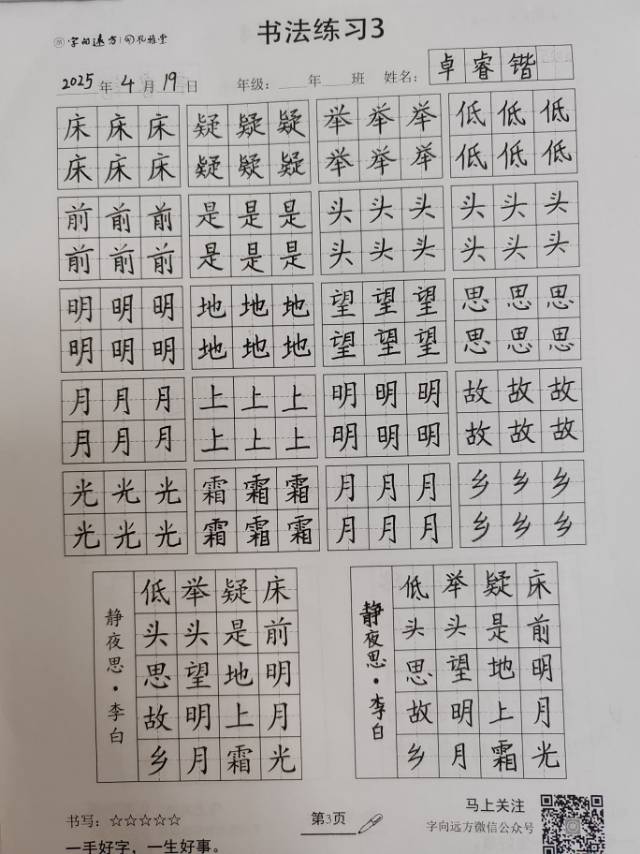 字向远方 孔雅堂
书法练习3
2025年4月19日 年级：___年___班 姓名：卓睿锴
床床床 疑疑疑 举举举 低低低
床床床 疑疑疑 举举举 低低低
前前前 是是是 头头头 头头头
前前前 是是是 头头头 头头头
明明明 地地地 望望望 思思思
明明明 地地地 望望望 思思思
月月月 上上上 明明明 故故故
月月月 上上上 明明明 故故故
光光光 霜霜霜 月月月 乡乡乡
光光光 霜霜霜 月月月 乡乡乡
床前明月光
疑是地上霜
举头望明月
低头思故乡
静夜思·李白
床前明月光
疑是地上霜
举头望明月
低头思故乡
静夜思·李白
书写：☆☆☆☆☆
一手好字，一生好事。
第3页
马上关注
字向远方微信公众号